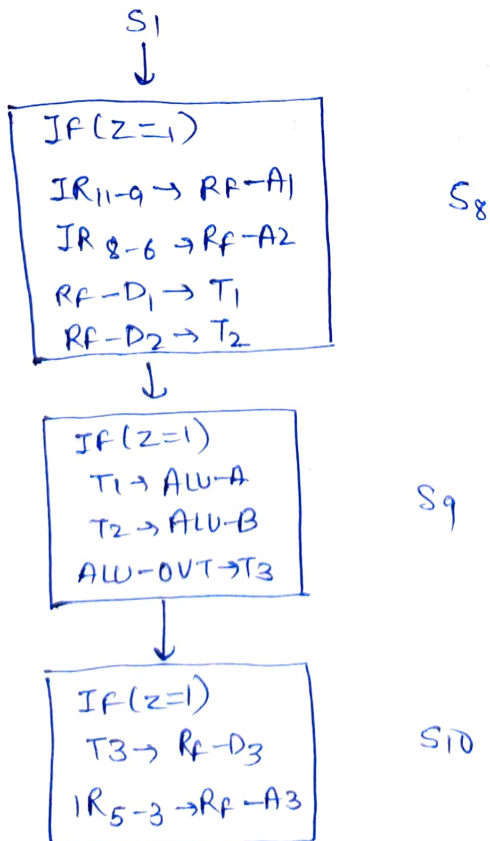 S1
If(Z=1)
IR11-9 → RF-A1
S8
IR 8-6 → RF-A2
RF-D1 → T1
RF-D2 → T2
If(Z=1)
T1 → ALU-A
S9
T2 → ALU-B
ALU-OUT→T3
If(Z=1)
T3 → RF-D3
S10
IR5-3 → RF-A3